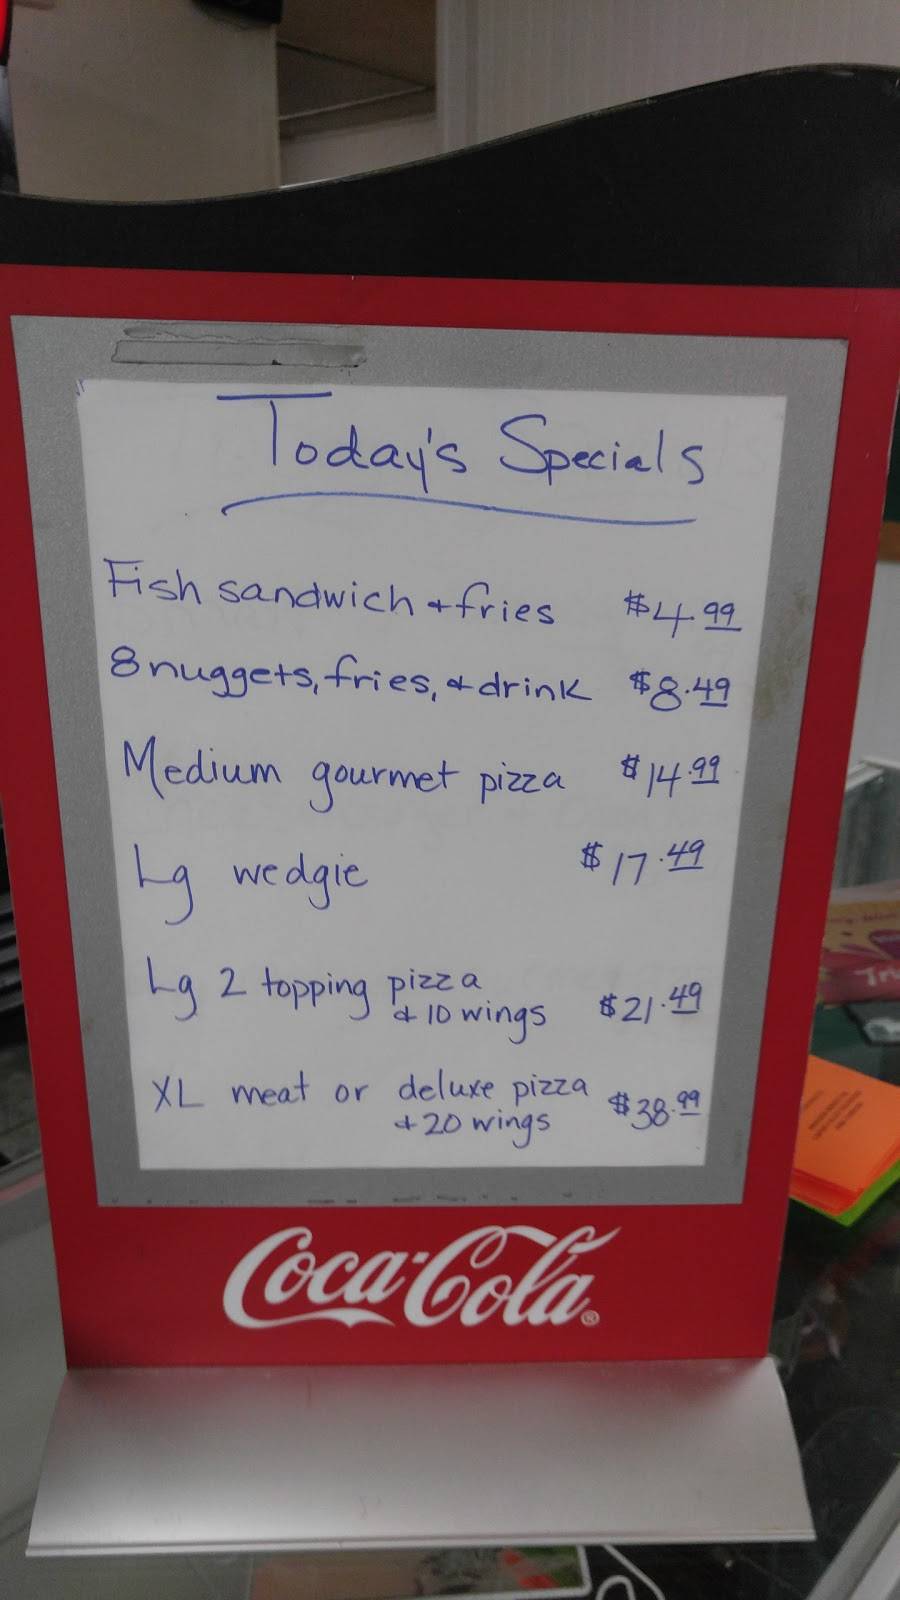 Today's Specials
Fish sandwich + fries $4.99
8 nuggets, fries, + drink $8.49
Medium gourmet pizza $14.99
Lg wedgie $17.49
Lg 2 topping pizza
+ 10 wings $21.49
XL meat or deluxe pizza
+ 20 wings $38.99
Coca-Cola®